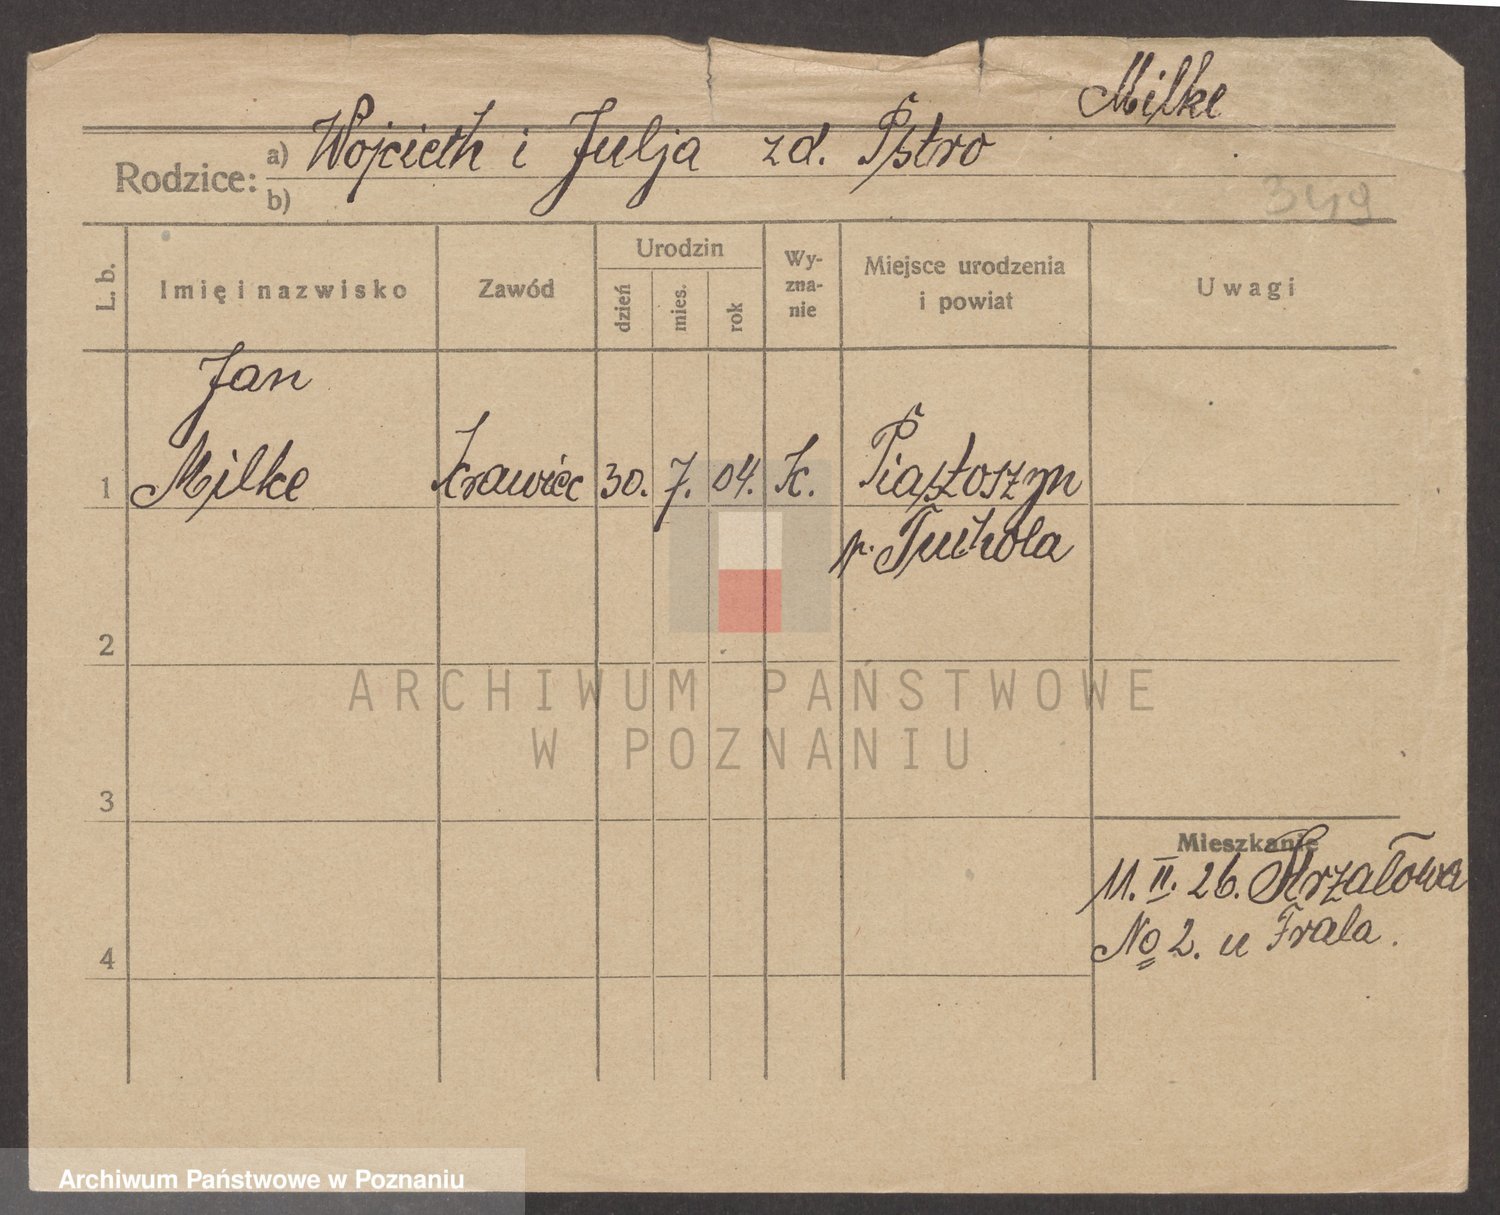 Milke
Rodzice: a) Wojciech i Julja zd. Pstro
b)
349
L. b.
Imię i nazwisko
Zawód
Urodzin
dzień
mies.
rok
Wy-
zna-
nie
Miejsce urodzenia
i powiat
Uwagi
Jan
1 Milke Krawiec 30. 7. 04. K. Piastoszyn
p. Tuchola
2
ARCHIWUM PAŃSTWOWE
W POZNANIU
3
Mieszkanie
11. II. 26. Strzałowa
No 2. u Frala.
4
Archiwum Państwowe w Poznaniu